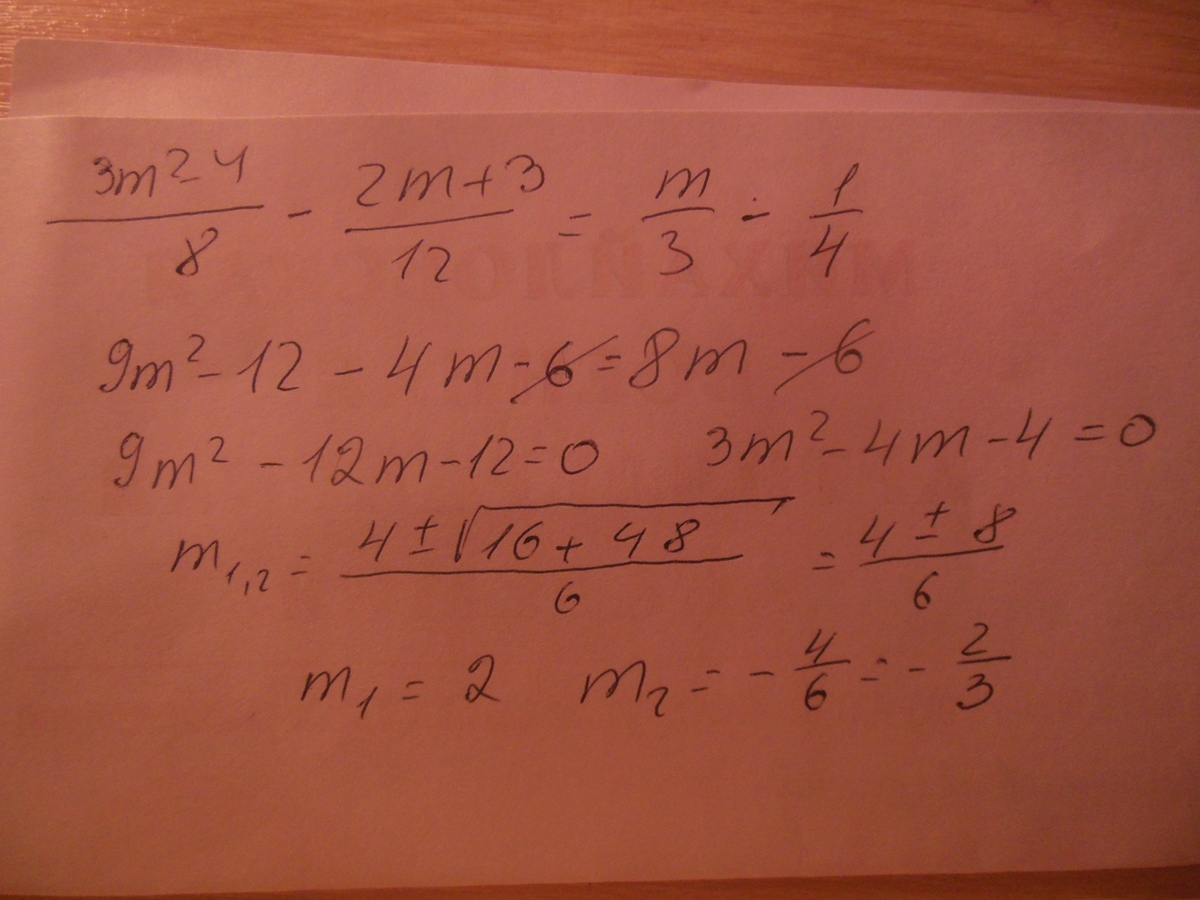 (3m² - 4)/8 - (2m + 3)/12 = m/3 - 1/4
9m² - 12 - 4m - 6 = 8m - 6
9m² - 12m - 12 = 0 3m² - 4m - 4 = 0
m₁,₂ = (4 ± √(16 + 48))/6 = (4 ± 8)/6
m₁ = 2 m₂ = - 4/6 = - 2/3